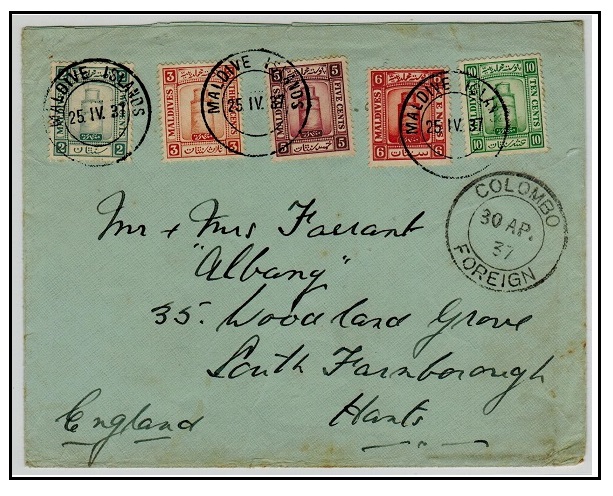 MALDIVE ISLANDS
25 IV. 37
MALDIVE ISLANDS
25 IV. 37
MALDIVE ISLA
25 IV 37
MALDIVES
2 2
MALDIVES
3 3
MALDIVES
FIVE CENTS
5 5
5 5
MALDIVES
6
6 6
10 10
MALDIVES
TEN CENTS
10 10
COLOMBO
30 AP.
37
FOREIGN
Mr + Mrs Farrant
"Albany"
35. Woodland Grove
South Farnborough
England Hants